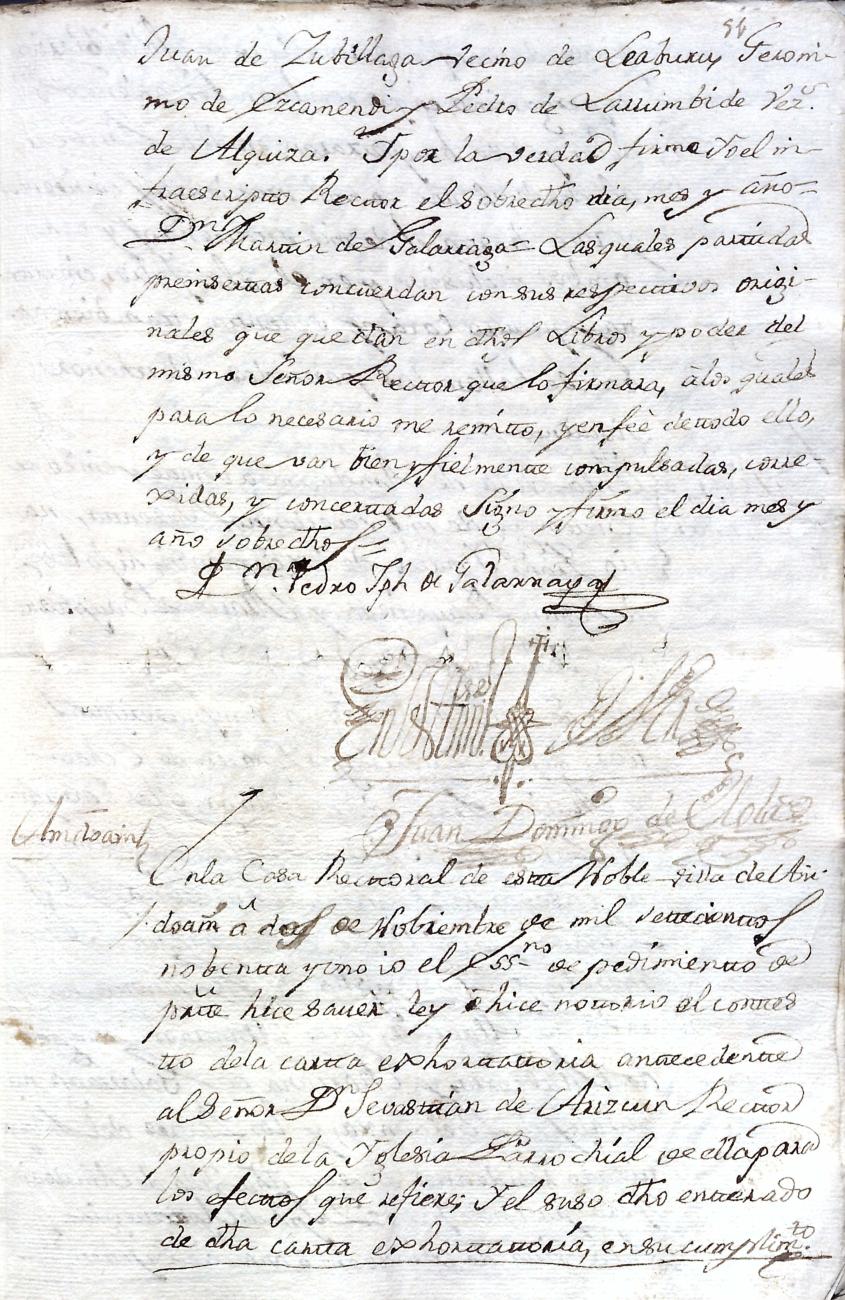 54
Juan de Zubillaga vecino de Leaburu, Geroni-
mo de Ercamendi y Pedro de Larrumbide Vez.s
de Alquiza. Y por la verdad firme Yo el in-
fraescripto Rector el sobredho dia, mes y año=
Dn Martin de Galarraga= Las quales partidas
preinsertas concuerdan con sus respectivos origi-
nales que quedan en dhos Libros y poder del
mismo Señor Rector que lo firmará, á los quales
para lo necesario me remitto, y en feè de todo ello,
y de que van bien y fielmente compulsadas, corre-
xidas, y concertadas Signo y firmo el dia mes y
año sobredhos=
Dn. Pedro Jph de Galarraga
En testim.
Juan Domingo de
Andoain
En la Casa Rectoral de esta Noble villa de An-
doain á dos de Nobiembre de mil settecientos
nobenta y uno io el Ess.no de pedimiento de
partte hice saver ley è hice notorio el contes
tto de la cartta exhorttattoria anttecedentte
al Señor Dn Sevasttian de Arizcun Rector
propio de la Yglesia Parrochial de ella para
los efectos que refiere; Y el suso dho entterado
de dha cartta exhorttattoria, en su cumplim.to